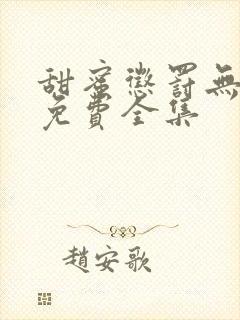 甜蜜懲罰無
免費全集
趙安歌